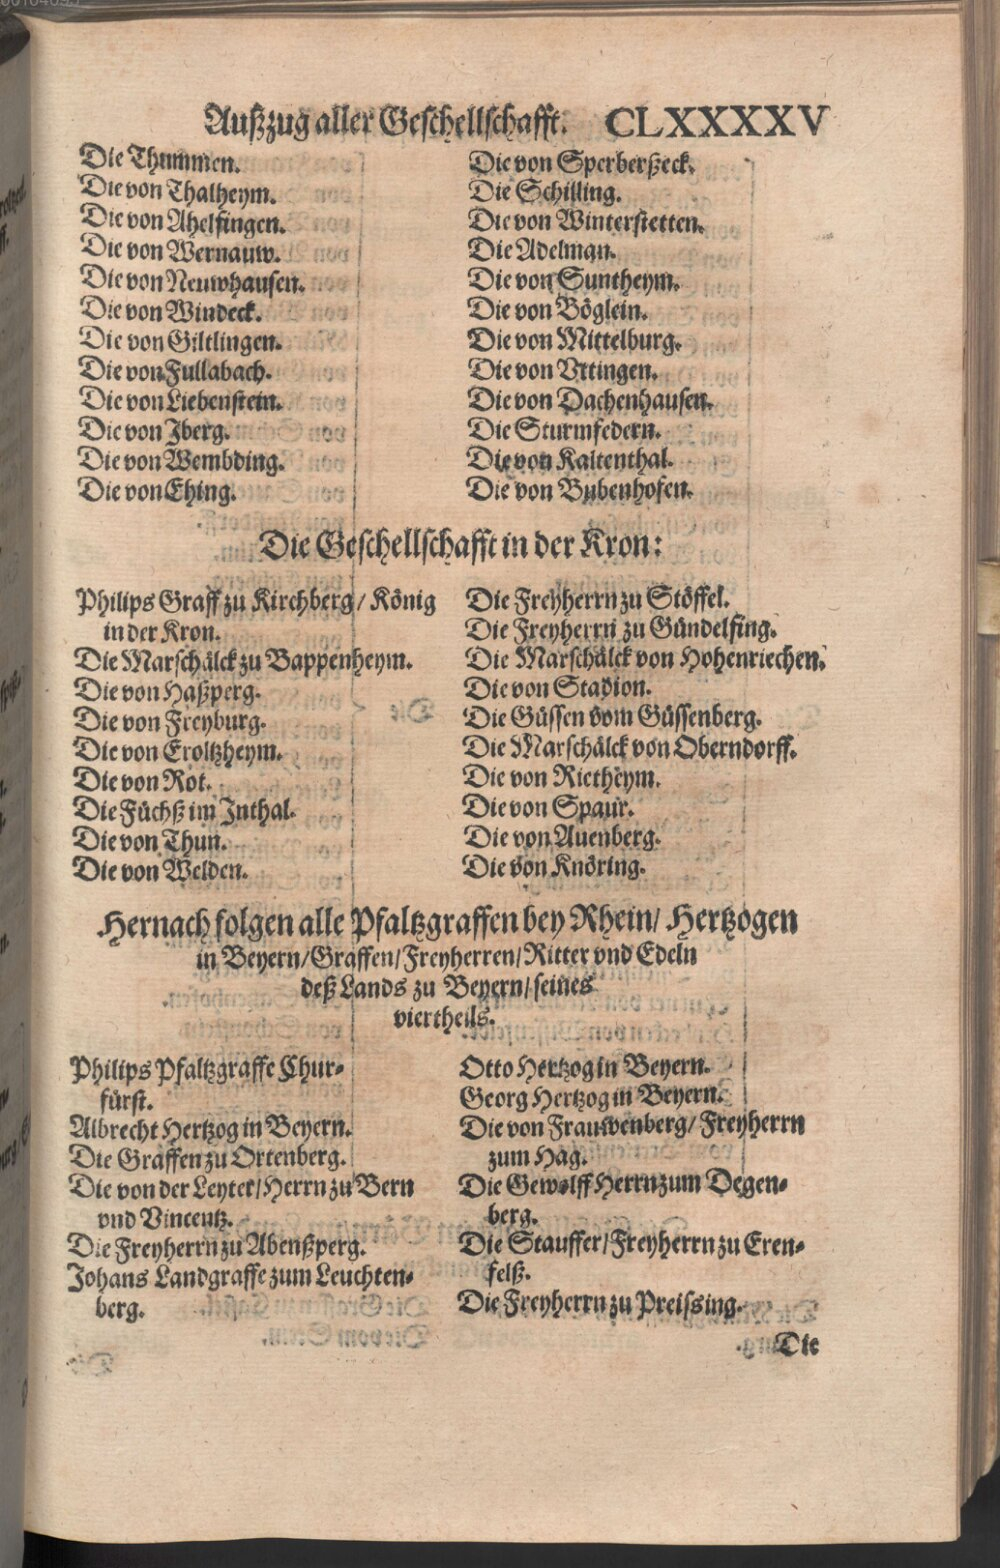 Außzug aller Geschellschafft. CLXXXXV
Die Thummen.
Die von Thalheym.
Die von Ahelfingen.
Die von Wernauw.
Die von Neuwhausen.
Die von Windeck.
Die von Giltlingen.
Die von Fullabach.
Die von Liebenstein.
Die von Jberg.
Die von Wembding.
Die von Ehing.
Die von Sperberßeck.
Die Schilling.
Die von Winterstetten.
Die Adelman.
Die von Suntheym.
Die von Böglein.
Die von Mittelburg.
Die von Vttingen.
Die von Dachenhausen.
Die Sturmfedern.
Die von Kaltenthal.
Die von Bubenhofen.
Die Geschellschafft in der Kron:
Philips Graff zu Kirchberg / König
in der Kron.
Die Marschälck zu Bappenheym.
Die von Haßperg.
Die von Freyburg.
Die von Eroltzheym.
Die von Rot.
Die Füchß im Jnthal.
Die von Thun.
Die von Welden.
Die Freyherrn zu Stöffel.
Die Freyherrn zu Gündelfing.
Die Marschälck von Hohenriechen.
Die von Stadion.
Die Güssen vom Güssenberg.
Die Marschälck von Oberndorff.
Die von Rietheym.
Die von Spaur.
Die von Auenberg.
Die von Knöring.
Hernach folgen alle Pfaltzgraffen bey Rhein / Hertzogen
in Beyern / Graffen / Freyherren / Ritter vnd Edeln
deß Lands zu Beyern / seines
viertheils.
Philips Pfaltzgraffe Chur-
fürst.
Albrecht Hertzog in Beyern.
Die Graffen zu Ortenberg.
Die von der Leyter / Herrn zu Bern
vnd Vincentz.
Die Freyherrn zu Abenßperg.
Johans Landgraffe zum Leuchten-
berg.
Otto Hertzog in Beyern.
Georg Hertzog in Beyern.
Die von Frauwenberg / Freyherrn
zum Hag.
Die Gewolff Herrn zum Degen-
berg.
Die Stauffer / Freyherrn zu Eren-
felß.
Die Freyherrn zu Preissing.
Die